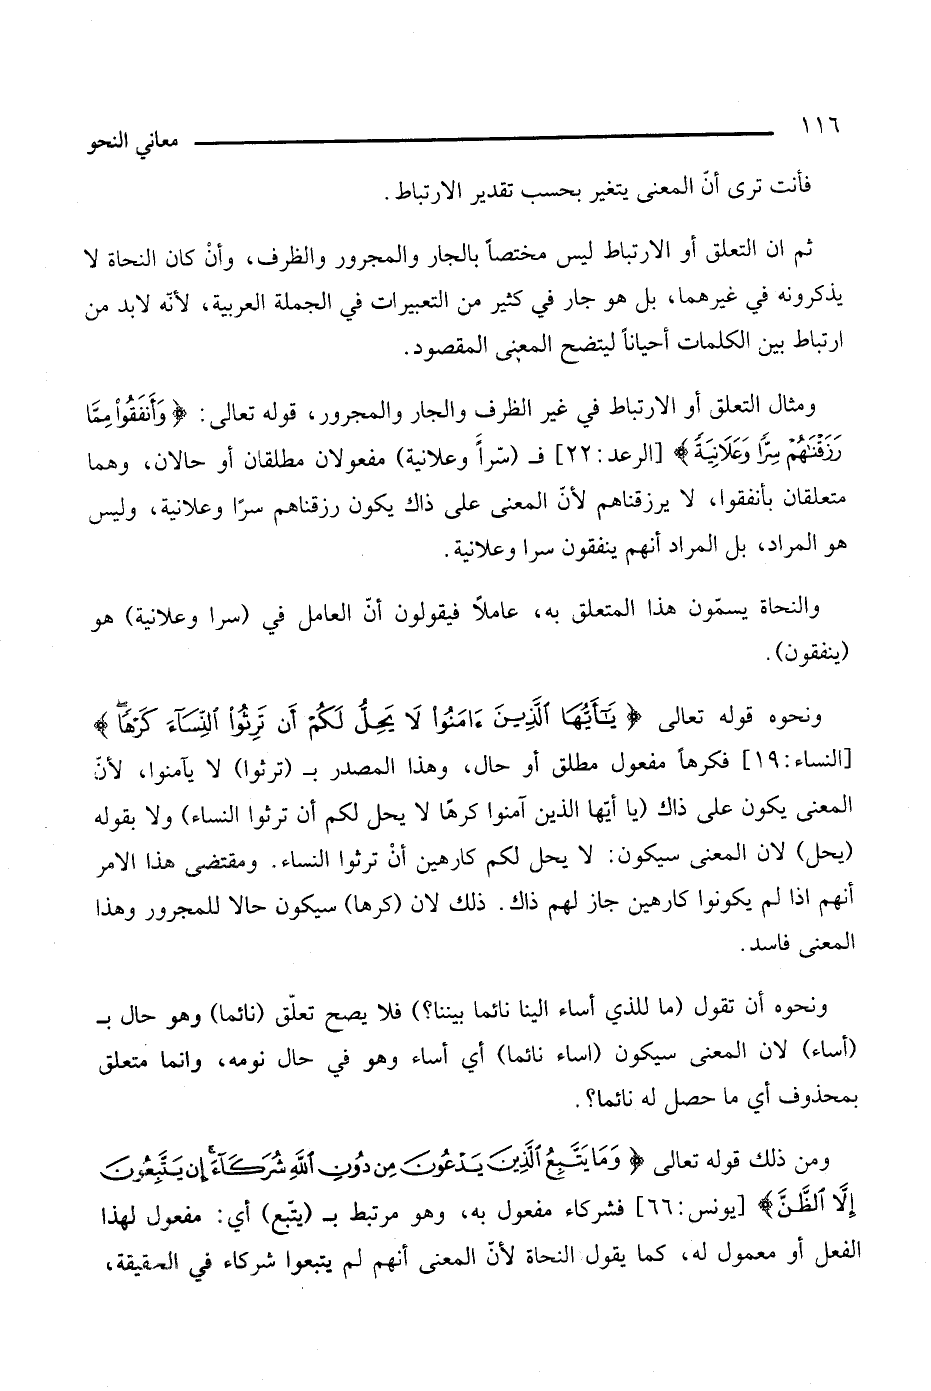 ١١٦ معاني النحو
فأنت ترى أنّ المعنى يتغير بحسب تقدير الارتباط.
ثم ان التعلق أو الارتباط ليس مختصاً بالجار والمجرور والظرف، وأنْ كان النحاة لا
يذكرونه في غيرهما، بل هو جار في كثير من التعبيرات في الجملة العربية، لأنّه لابد من
ارتباط بين الكلمات أحياناً ليتضح المعنى المقصود.
ومثال التعلق أو الارتباط في غير الظرف والجار والمجرور، قوله تعالى: ﴿ وَأَنفَقُواْ مِمَّا
رَزَقْنَٰهُمْ سِرًّا وَعَلَانِيَةً ﴾ [الرعد:٢٢] فـ (سّراً وعلانية) مفعولان مطلقان أو حالان، وهما
متعلقان بأنفقوا، لا يرزقناهم لأنّ المعنى على ذاك يكون رزقناهم سرًا وعلانية، وليس
هو المراد، بل المراد أنهم ينفقون سرا وعلانية.
والنحاة يسمّون هذا المتعلق به، عاملاً فيقولون أنّ العامل في (سرا وعلانية) هو
(ينفقون).
ونحوه قوله تعالى ﴿ يَٰٓأَيُّهَا ٱلَّذِينَ ءَامَنُواْ لَا يَحِلُّ لَكُمْ أَن تَرِثُواْ ٱلنِّسَآءَ كَرْهًاۖ ﴾
[النساء:١٩] فكرهاً مفعول مطلق أو حال، وهذا المصدر بـ (ترثوا) لا يآمنوا، لأنّ
المعنى يكون على ذاك (يا أيّها الذين آمنوا كرهًا لا يحل لكم أن ترثوا النساء) ولا بقوله
(يحل) لان المعنى سيكون: لا يحل لكم كارهين أنْ ترثوا النساء. ومقتضى هذا الامر
أنهم اذا لم يكونوا كارهين جاز لهم ذاك. ذلك لان (كرها) سيكون حالا للمجرور وهذا
المعنى فاسد.
ونحوه أن تقول (ما للذي أساء الينا نائما بيننا؟) فلا يصح تعلّق (نائما) وهو حال بـ
(أساء) لان المعنى سيكون (اساء نائما) أي أساء وهو في حال نومه، وانما متعلق
بمحذوف أي ما حصل له نائما؟.
ومن ذلك قوله تعالى ﴿ وَمَا يَتَّبِعُ ٱلَّذِينَ يَدْعُونَ مِن دُونِ ٱللَّهِ شُرَكَآءَۚ إِن يَتَّبِعُونَ
إِلَّا ٱلظَّنَّ ﴾ [يونس:٦٦] فشركاء مفعول به، وهو مرتبط بـ (يتّبع) أي: مفعول لهذا
الفعل أو معمول له، كما يقول النحاة لأنّ المعنى أنهم لم يتبعوا شركاء في الحقيقة،